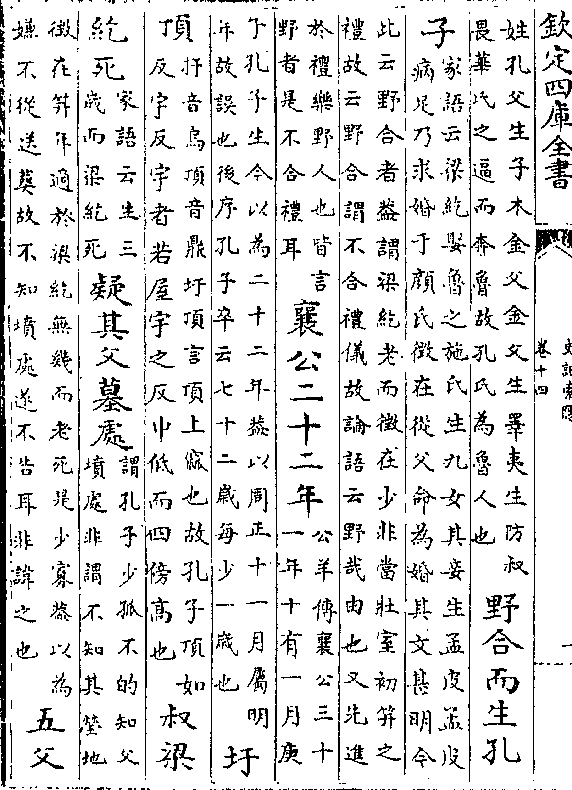 欽定四庫全書
史記索隱
卷十四
姓孔父生子木金父金父生睪夷生防叔
畏華氏之逼而奔魯故孔氏為魯人也
野合而生孔
子
家語云梁紇娶魯之施氏生九女其妾生孟皮孟皮
病足乃求婚于顔氏徵在從父命為婚其文甚明今
此云野合者蓋謂梁紇老而徵在少非當壯室初筓之
禮故云野合謂不合禮儀故論語云野哉由也又先進
於禮樂野人也皆言
野者是不合禮耳
襄公二十二年
公羊傳襄公三十
一年十有一月庚
子孔子生今以為二十二年蓋以周正十一月屬明
年故誤也後序孔子卒云七十二歳每少一歳也
圩
頂
圩音烏頂音鼎圩頂言頂上窳也故孔子頂如
反宇反宇者若屋宇之反中低而四傍高也
叔梁
紇死
家語云生三
歳而梁紇死
疑其父墓處
謂孔子少孤不的知父
墳處非謂不知其塋地
徵在筓年適於梁紇無幾而老死是少寡蓋以為
嫌不從送葬故不知墳處遂不告耳非諱之也
五父